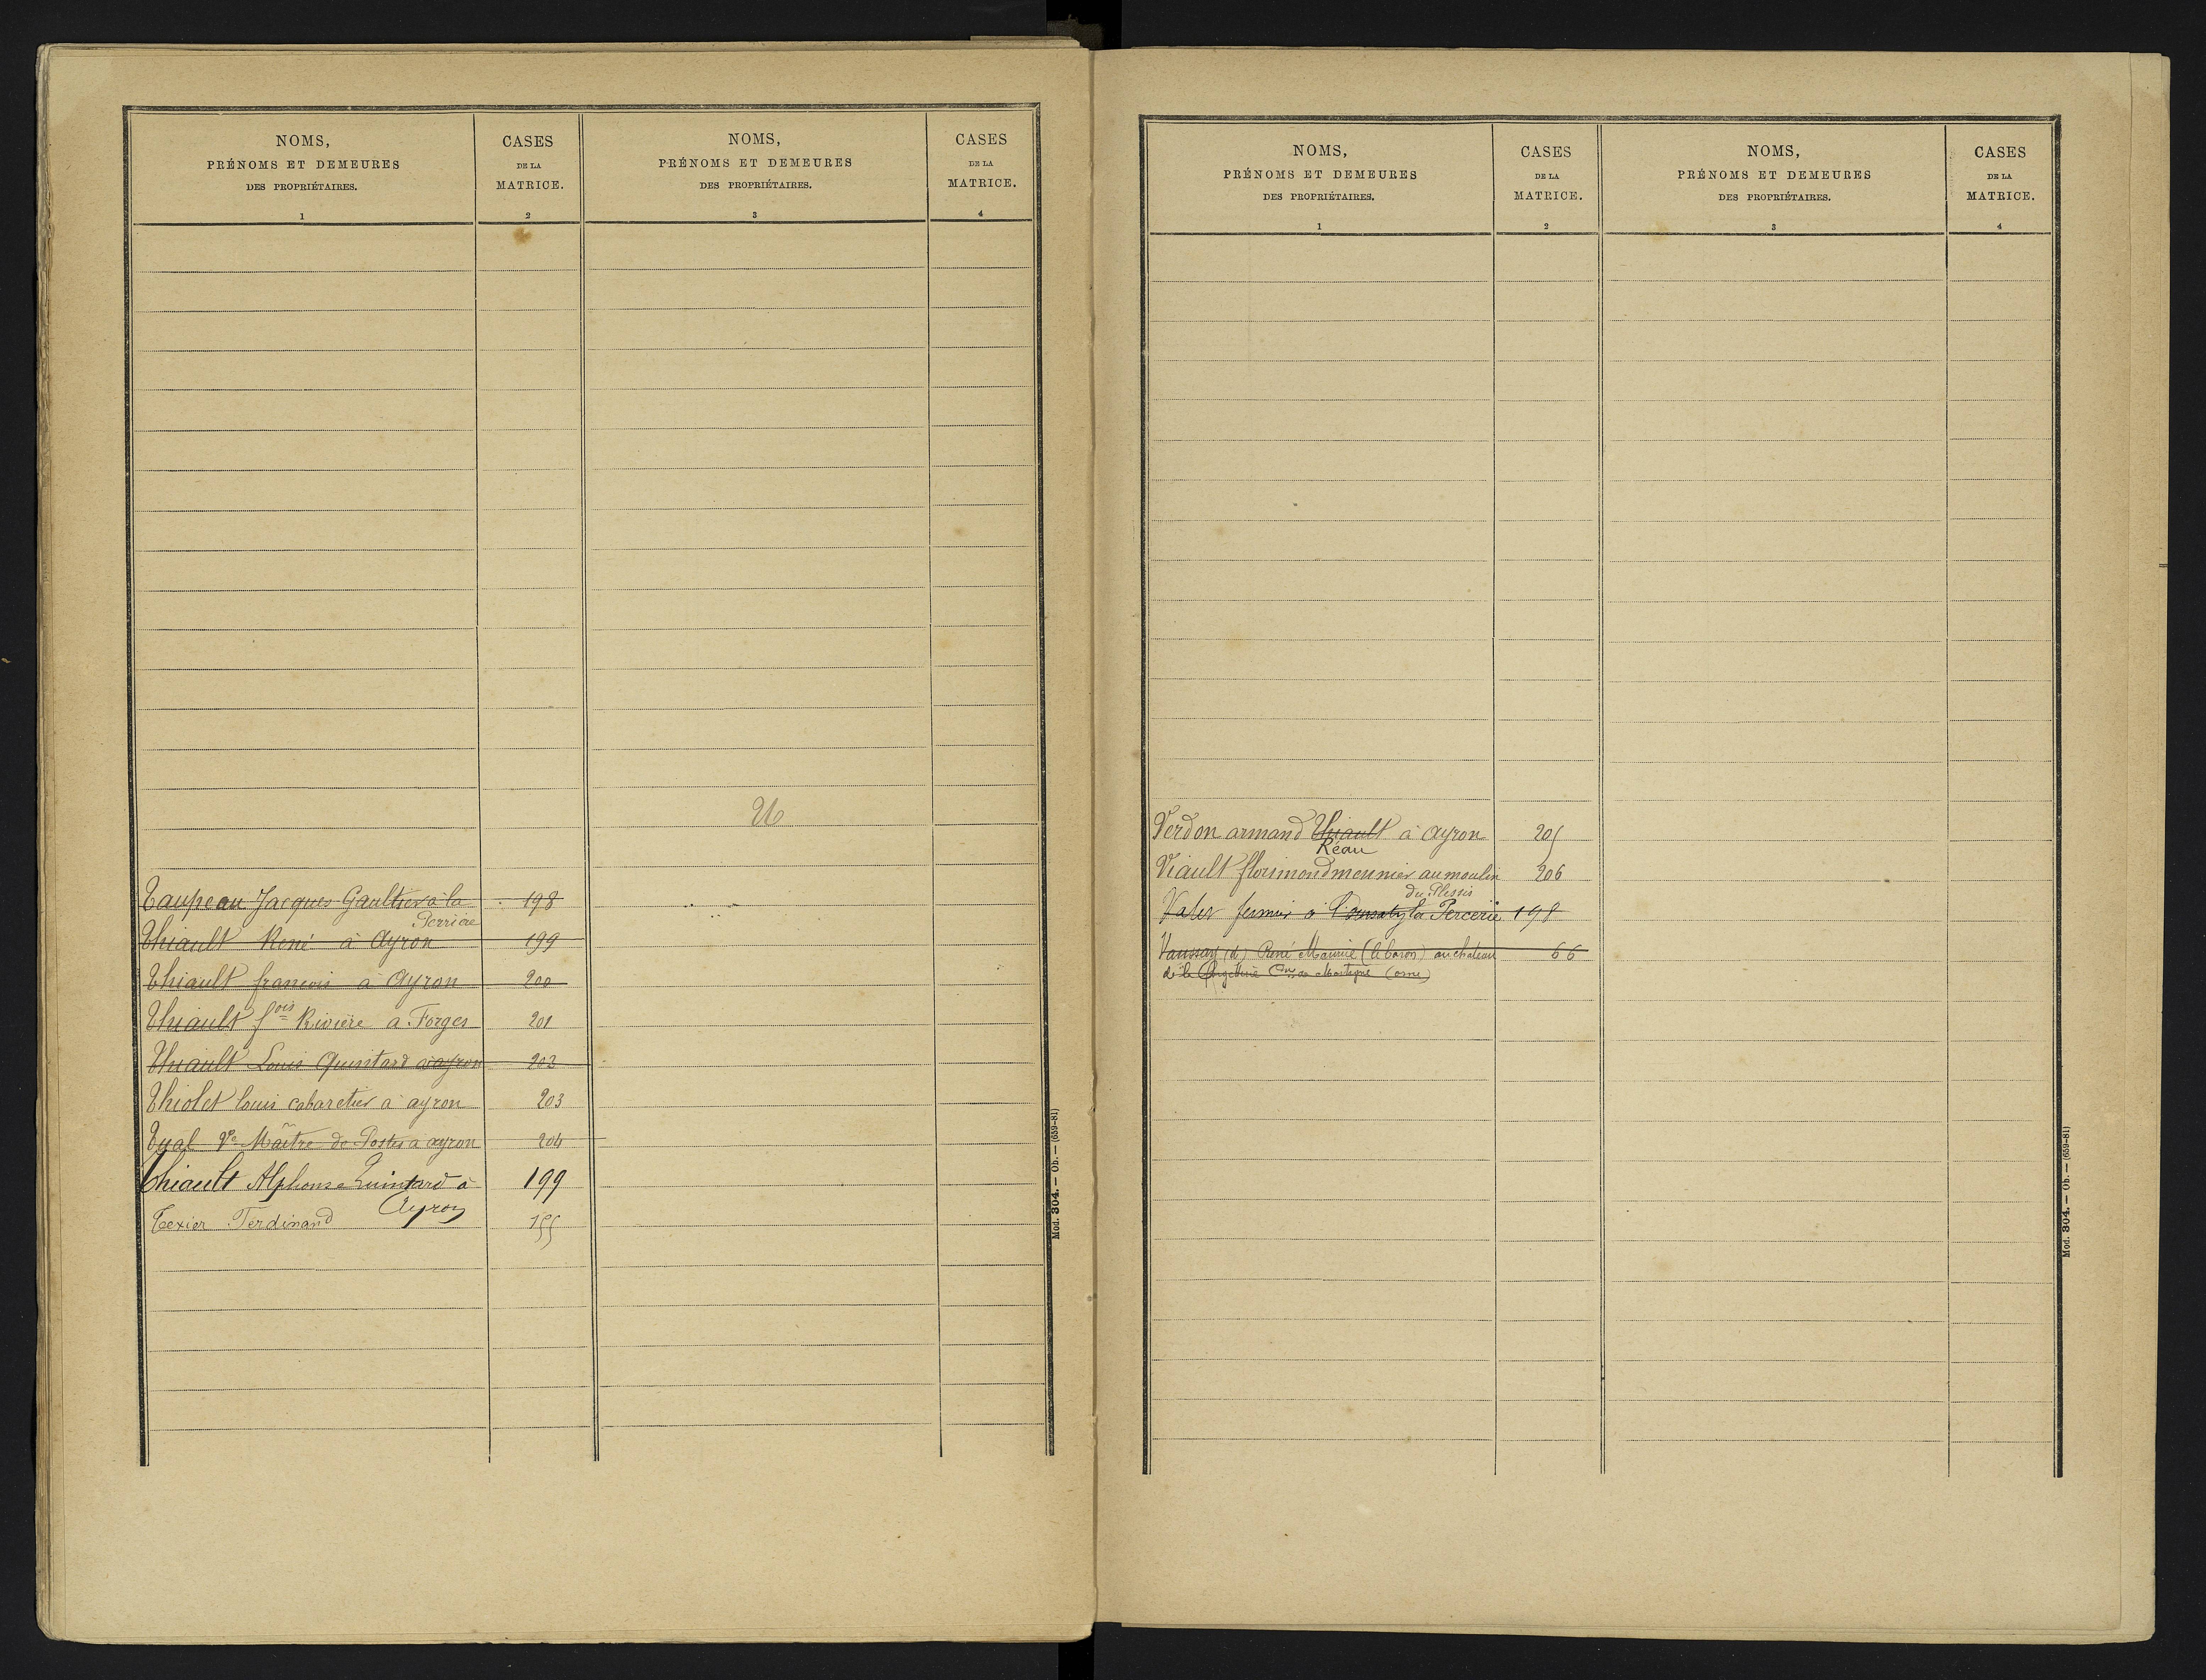 NOMS,
PRÉNOMS ET DEMEURES
DES PROPRIÉTAIRES.
1
CASES
DE LA
MATRICE.
2
NOMS,
PRÉNOMS ET DEMEURES
DES PROPRIÉTAIRES.
3
CASES
DE LA
MATRICE.
4
Taupeau Jacques Gaultier à la 198
Perrière
Thiault René à Ayron 199
Thiault francois à Ayron 200
Thiault fois Rivière à Forges 201
Thiault Louis Quintard à ayron 202
Thiolet louis cabaretier à ayron 203
Tyal Ve Maître de Postes à ayron 204
Thiault Alphonse Quintard à 199
Ayron
Texier Ferdinand 155
U
Mod. 304. — Ob. — (659-81)
NOMS,
PRÉNOMS ET DEMEURES
DES PROPRIÉTAIRES.
1
CASES
DE LA
MATRICE.
2
NOMS,
PRÉNOMS ET DEMEURES
DES PROPRIÉTAIRES.
3
CASES
DE LA
MATRICE.
4
Verdon armand Thiault à ayron 205
Réau
Viault florimond meunier au moulin 206
du Plessis
fermier à la Percerie 198
Vaussay (de) René Maurice (le baron) au chateau 66
de la Mortagne (orne)
Mod. 304. — Ob. — (659-81)